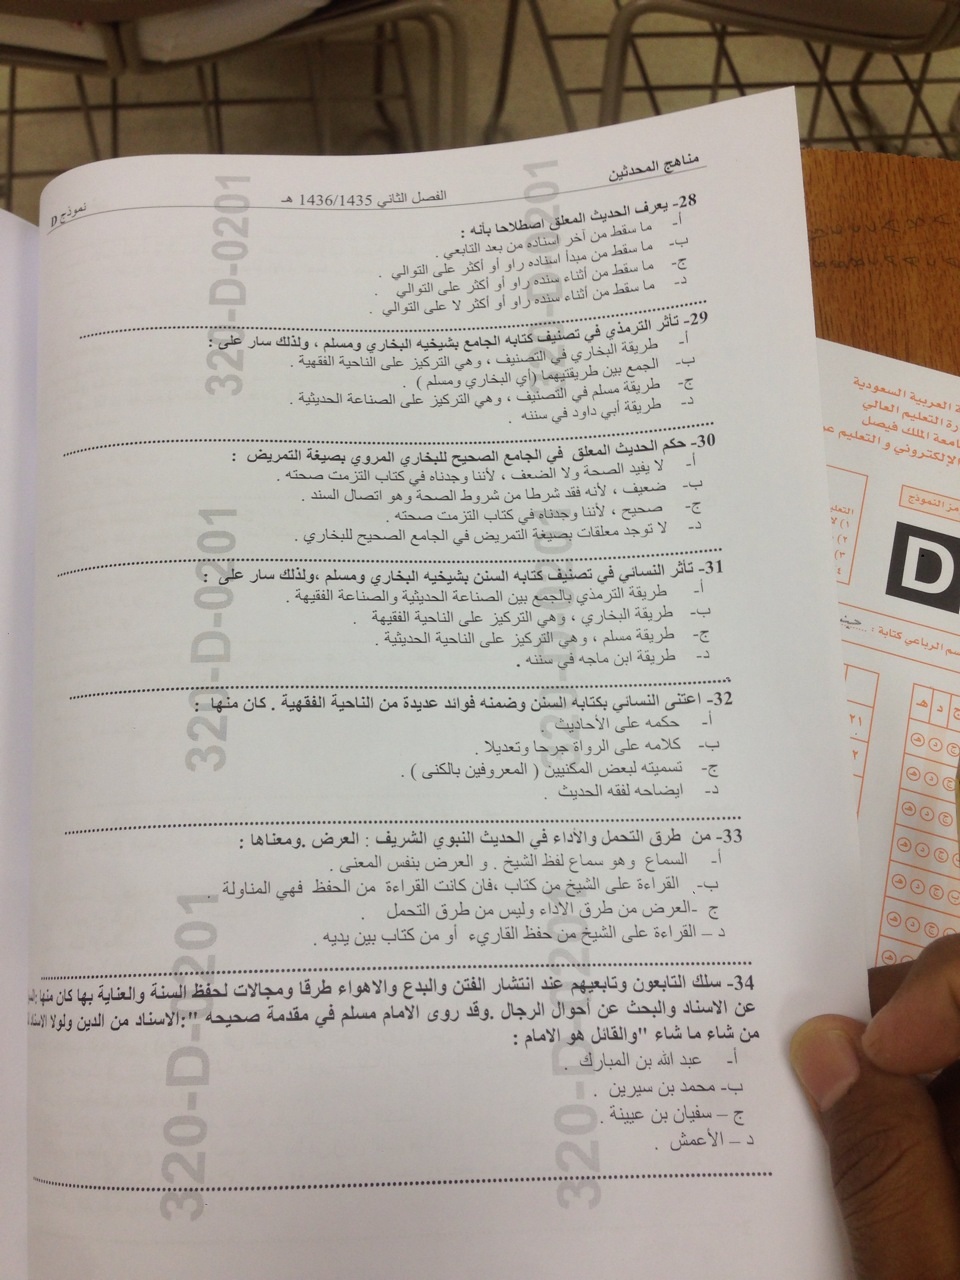 مناهج المحدثين
الفصل الثاني 1436/1435 هـ
نموذج D
28- يعرف الحديث المعلق اصطلاحا بأنه :
أ- ما سقط من أخر اسناده من بعد التابعي .
ب- ما سقط من مبدأ اسناده راو أو أكثر على التوالي .
ج- ما سقط من أثناء سنده راو أو أكثر على التوالي .
د- ما سقط من أثناء سنده راو أو أكثر لا على التوالي .
29- تأثر الترمذي في تصنيف كتابه الجامع بشيخيه البخاري ومسلم ، ولذلك سار على :
أ- طريقة البخاري في التصنيف ، وهي التركيز على الناحية الفقهية .
ب- الجمع بين طريقتيهما (أي البخاري ومسلم ) .
ج- طريقة مسلم في التصنيف ، وهي التركيز على الصناعة الحديثية .
د- طريقة أبي داود في سننه .
30- حكم الحديث المعلق في الجامع الصحيح للبخاري المروي بصيغة التمريض :
أ- لا يفيد الصحة ولا الضعف ، لأننا وجدناه في كتاب التزمت صحته .
ب- ضعيف ، لأنه فقد شرطا من شروط الصحة وهو اتصال السند .
ج- صحيح ، لأننا وجدناه في كتاب التزمت صحته .
د- لا توجد معلقات بصيغة التمريض في الجامع الصحيح للبخاري .
31- تأثر النسائي في تصنيف كتابه السنن بشيخيه البخاري ومسلم ،ولذلك سار على :
أ- طريقة الترمذي بالجمع بين الصناعة الحديثية والصناعة الفقيهة .
ب- طريقة البخاري ، وهي التركيز على الناحية الفقيهة .
ج- طريقة مسلم ، وهي التركيز على الناحية الحديثية .
د- طريقة ابن ماجه في سننه .
32- اعتنى النسائي بكتابه السنن وضمنه فوائد عديدة من الناحية الفقهية . كان منها :
أ- حكمه على الأحاديث .
ب- كلامه على الرواة جرحا وتعديلا .
ج- تسميته لبعض المكنيين ( المعروفين بالكنى ) .
د- ايضاحه لفقه الحديث .
33- من طرق التحمل والأداء في الحديث النبوي الشريف : العرض .ومعناها :
أ- السماع وهو سماع لفظ الشيخ . و العرض بنفس المعنى .
ب- القراءة على الشيخ من كتاب ،فان كانت القراءة من الحفظ فهي المناولة .
ج -العرض من طرق الاداء وليس من طرق التحمل
د – القراءة على الشيخ من حفظ القاريء أو من كتاب بين يديه .
34- سلك التابعون وتابعيهم عند انتشار الفتن والبدع والاهواء طرقا ومجالات لحفظ السنة والعناية بها كان منها
عن الاسناد والبحث عن أحوال الرجال .وقد روى الامام مسلم في مقدمة صحيحه ":الاسناد من الدين ولولا
من شاء ما شاء "والقائل هو الامام :
أ- عبد الله بن المبارك .
ب- محمد بن سيرين .
ج – سفيان بن عيينة .
د – الأعمش .
320-D-0201
320-D-0201
320-D-0201
320-D-0201
320-D-0201
320-D-0201
العربية السعودية
التعليم العالي
الملك فيصل
الإلكتروني و التعليم
النموذج
D
الرباعي كتابة :
هـ د ج
٢١